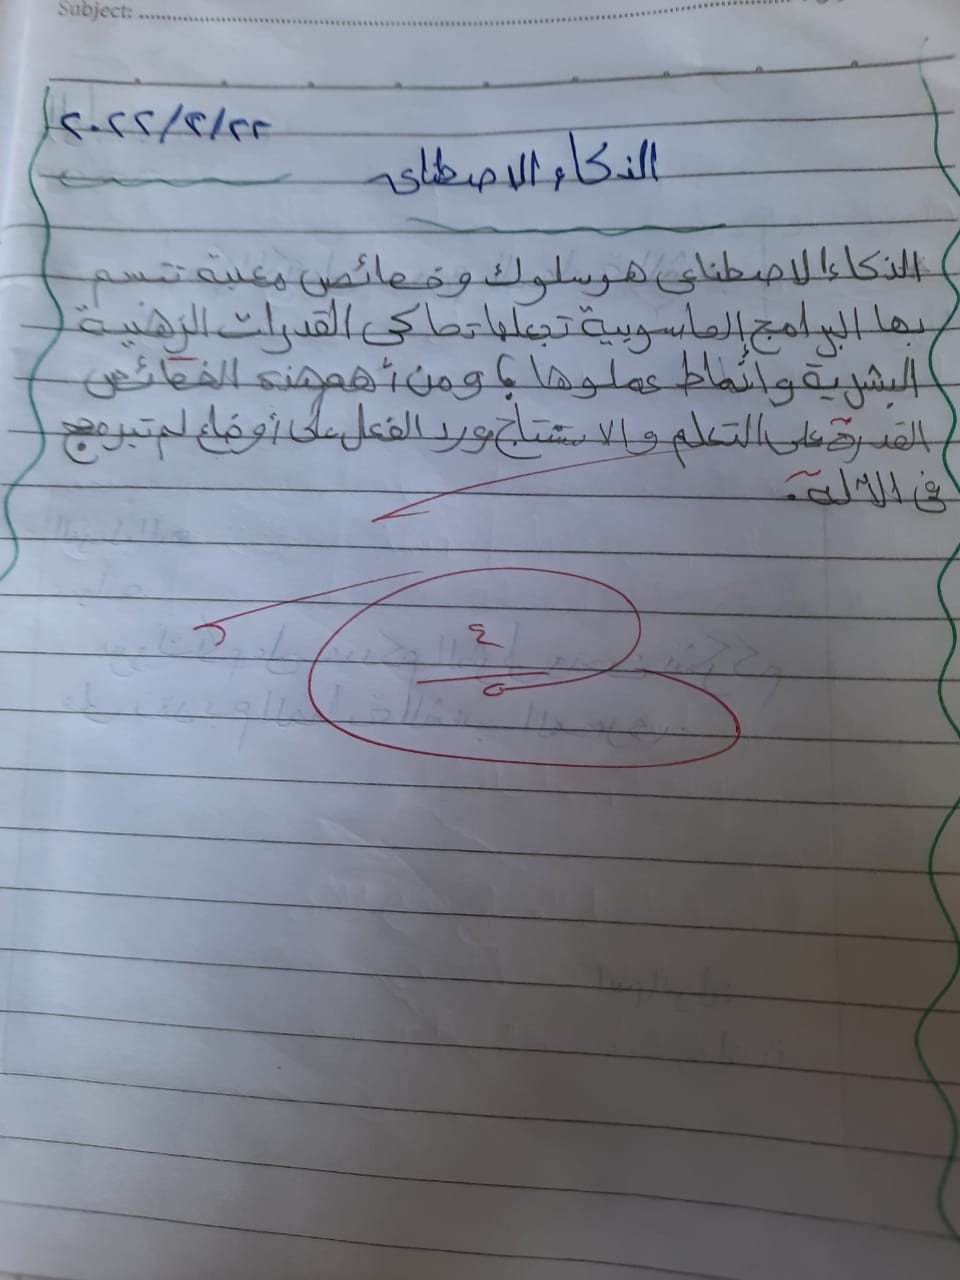 Subject:
٢٠٢٢/٢/٢٢
الذكاء الاصطناعي
الذكاء الاصطناعي هو سلوك وخصائص معينة تتسم
بها البرامج الحاسوبية تجعلها تحاكي القدرات الذهنية
البشرية وأنماط عملوها ؟ ومن أهم هذه الخصائص
القدرة على التعلم والاستنتاج ورد الفعل على أوضاع لم تبرمج
في الآلة.
٤
٥